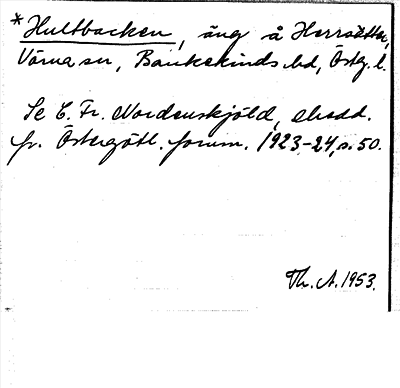 *Hultbacken, äng å Herrsätter,
Värna sn, Bankekinds hd, Östg. l.
Se C. Fr. Nordenskjöld, medd.
fr. Östergötl. fornm. 1923-24, s. 50.
Th. A. 1953.